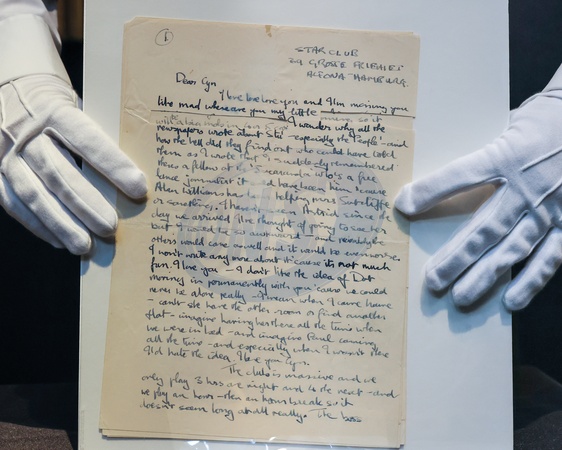 1
STAR CLUB
39 GROSSE FREIHEIT
ALTONA HAMBURG.
Dear Cyn
I love love love you and I'm missing you
like mad where are you my little
I wonder why all the
newspapers wrote about Stu - especially the People - and
how the hell did they find out who could have told
them as I wrote that I suddenly remembered
there's a fellow at who is a free
lance journalist it had been him because
Allan Williams had helping Mrs Sutcliffe
or something. I haven't seen Astrid since the
day we arrived I've thought of going to see her
but I would be so awkward - and probably the
others would come as well and it would be even worse.
I won't write any more about it 'cause it's not much
fun. I love you - I don't like the idea of Dot
moving in permanently with you 'cause we could
never be alone really - I mean when I come home
- can't she have the other room or find another
flat - imagine having her there all the time when
we were in bed - and imagine Paul coming
all the time - and especially when I wasn't there
I'd hate the idea. I love you Cyn.
The club is massive and we
only play 3 hrs one night and 4 the next - and
we play an hour - then an hours break so it
doesn't seem long at all really. The boss